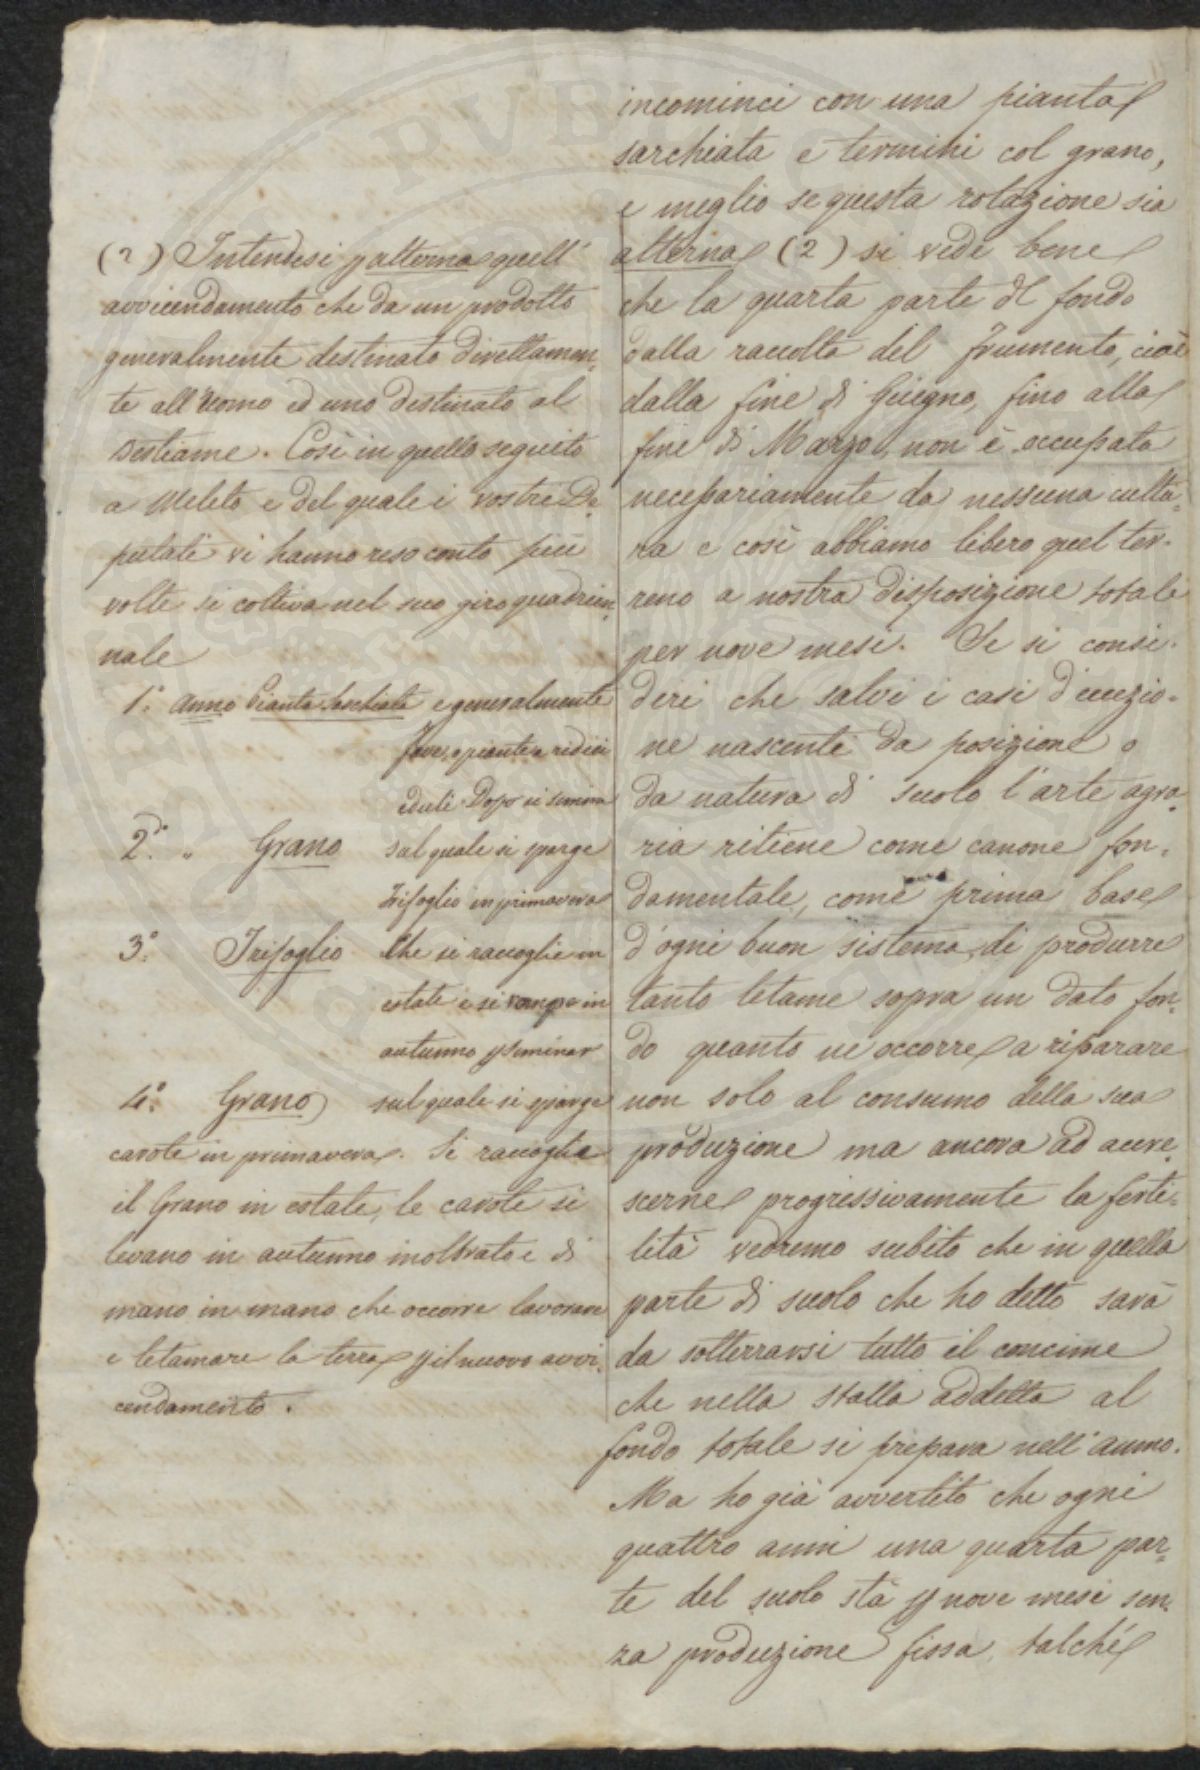 incominci con una pianta
sarchiata e termini col grano,
e meglio se questa rotazione sia
alterna (2) si vede bene
che la quarta parte del fondo
dalla raccolta del frumento, cioè
dalla fine di Giugno, fino alla
fine di Marzo, non è occupata
necessariamente da nessuna cultu-
ra e così abbiamo libero quel ter-
reno a nostra disposizione totale
per nove mesi. Se si consi-
deri che salvi i casi d'eccezio-
ne nascenti da posizione o
da natura di suolo l'arte agra-
ria ritiene come canone fon-
damentale, come prima base
d'ogni buon sistema, di produrre
tanto letame sopra un dato fon-
do quanto ne occorre a riparare
non solo al consumo della sua
produzione ma ancora ad accre-
scerne progressivamente la ferti-
lità vedremo subito che in quella
parte di suolo che ho detto sarà
da sotterrarsi tutto il concime
che nella stalla addetta al
fondo totale si prepara nell'anno.
Ma ho già avvertito che ogni
quattro anni una quarta par-
te del suolo stà p nove mesi sen-
za produzione fissa, talché
(2) Intendesi p alterna quell'
avvicendamento che da un prodotto
generalmente destinato direttamen-
te all'Uomo ed uno destinato al
Bestiame. Così in quello seguito
a Meleto e del quale i vostri De-
putati vi hanno reso conto più
volte si coltiva nel suo giro quadrien-
nale
1.° Anno Pianta Sarchiata e generalmente
fave, o piante a radici
eduli Dopo si semina
2.° " Grano sul quale si sparge
Trifoglio in primavera
3.° Trifoglio Che si raccoglie in
estate e si rompe in
autunno p seminar
4.° Grano sul quale si sparge
carote in primavera. Si raccoglie
il Grano in estate, le carote si
levano in autunno inoltrato e di
mano in mano che occorre lavorare
e letamare la terra p il nuovo avvi-
cendamento.